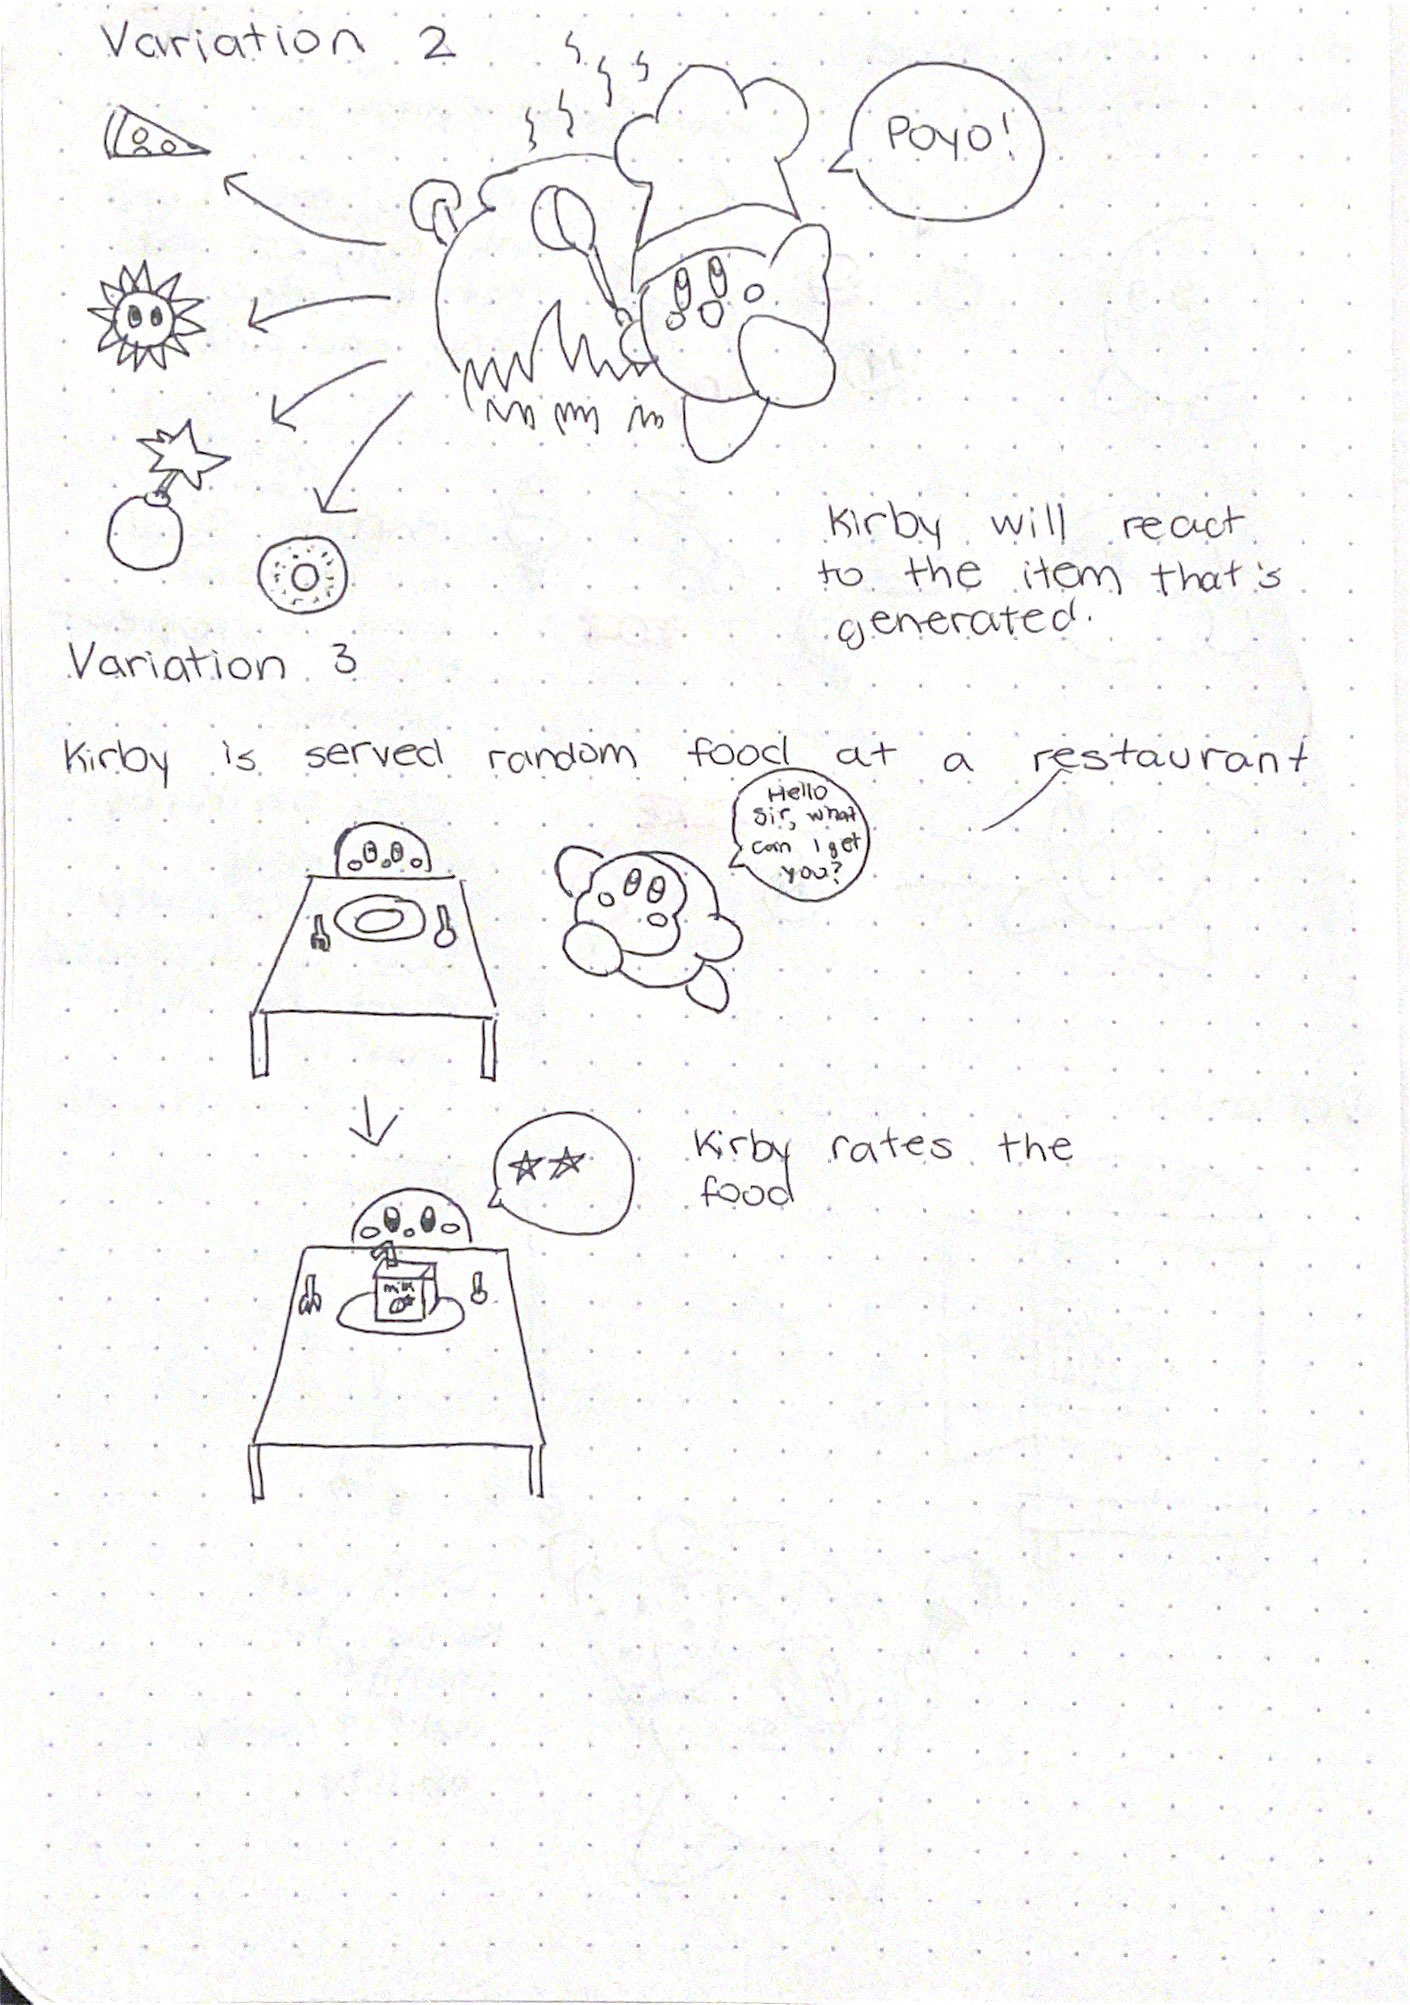 Variation 2
Poyo!
Kirby will react
to the item that's
generated.
Variation 3
Kirby is served random food at a restaurant
Hello
Sir, what
can I get
you?
Kirby rates the
food
milk